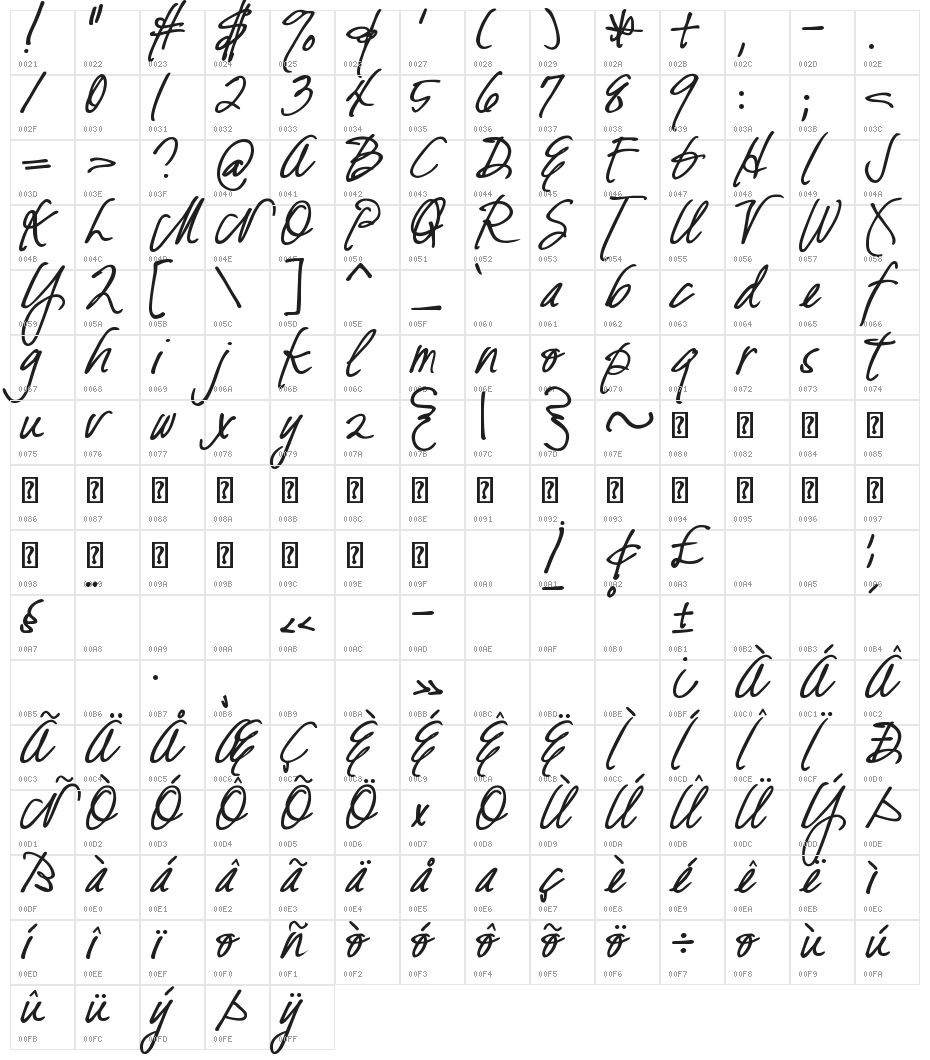 ! " # $ % & ' ( ) * + , - .
0021 0022 0023 0024 0025 0026 0027 0028 0029 002A 002B 002C 002D 002E
/ 0 1 2 3 4 5 6 7 8 9 : ; <
002F 0030 0031 0032 0033 0034 0035 0036 0037 0038 0039 003A 003B 003C
= > ? @ A B C D E F G H I J
003D 003E 003F 0040 0041 0042 0043 0044 0045 0046 0047 0048 0049 004A
K L M N O P Q R S T U V W X
004B 004C 004D 004E 004F 0050 0051 0052 0053 0054 0055 0056 0057 0058
Y Z [ \ ] ^ _ ` a b c d e f
0059 005A 005B 005C 005D 005E 005F 0060 0061 0062 0063 0064 0065 0066
g h i j k l m n o p q r s t
0067 0068 0069 006A 006B 006C 006D 006E 006F 0070 0071 0072 0073 0074
u v w x y z { | } ~ ? ? ? ?
0075 0076 0077 0078 0079 007A 007B 007C 007D 007E 0080 0082 0084 0085
? ? ? ? ? ? ? ? ? ? ? ? ? ?
0086 0087 0088 008A 008B 008C 008E 0091 0092 0093 0094 0095 0096 0097
? ? ? ? ? ? ? ¡ ¢ £ ¦
0098 0099 009A 009B 009C 009E 009F 00A0 00A1 00A2 00A3 00A4 00A5 00A6
§ ¨ « - ¯ ± ´
00A7 00A8 00A9 00AA 00AB 00AC 00AD 00AE 00AF 00B0 00B1 00B2 00B3 00B4
· ¸ » ¿ À Á Â
00B5 00B6 00B7 00B8 00B9 00BA 00BB 00BC 00BD 00BE 00BF 00C0 00C1 00C2
Ã Ä Å Æ Ç È É Ê Ë Ì Í Î Ï Ð
00C3 00C4 00C5 00C6 00C7 00C8 00C9 00CA 00CB 00CC 00CD 00CE 00CF 00D0
Ñ Ò Ó Ô Õ Ö × Ø Ù Ú Û Ü Ý Þ
00D1 00D2 00D3 00D4 00D5 00D6 00D7 00D8 00D9 00DA 00DB 00DC 00DD 00DE
ß à á â ã ä å æ ç è é ê ë ì
00DF 00E0 00E1 00E2 00E3 00E4 00E5 00E6 00E7 00E8 00E9 00EA 00EB 00EC
í î ï ð ñ ò ó ô õ ö ÷ ø ù ú
00ED 00EE 00EF 00F0 00F1 00F2 00F3 00F4 00F5 00F6 00F7 00F8 00F9 00FA
û ü ý þ ÿ
00FB 00FC 00FD 00FE 00FF